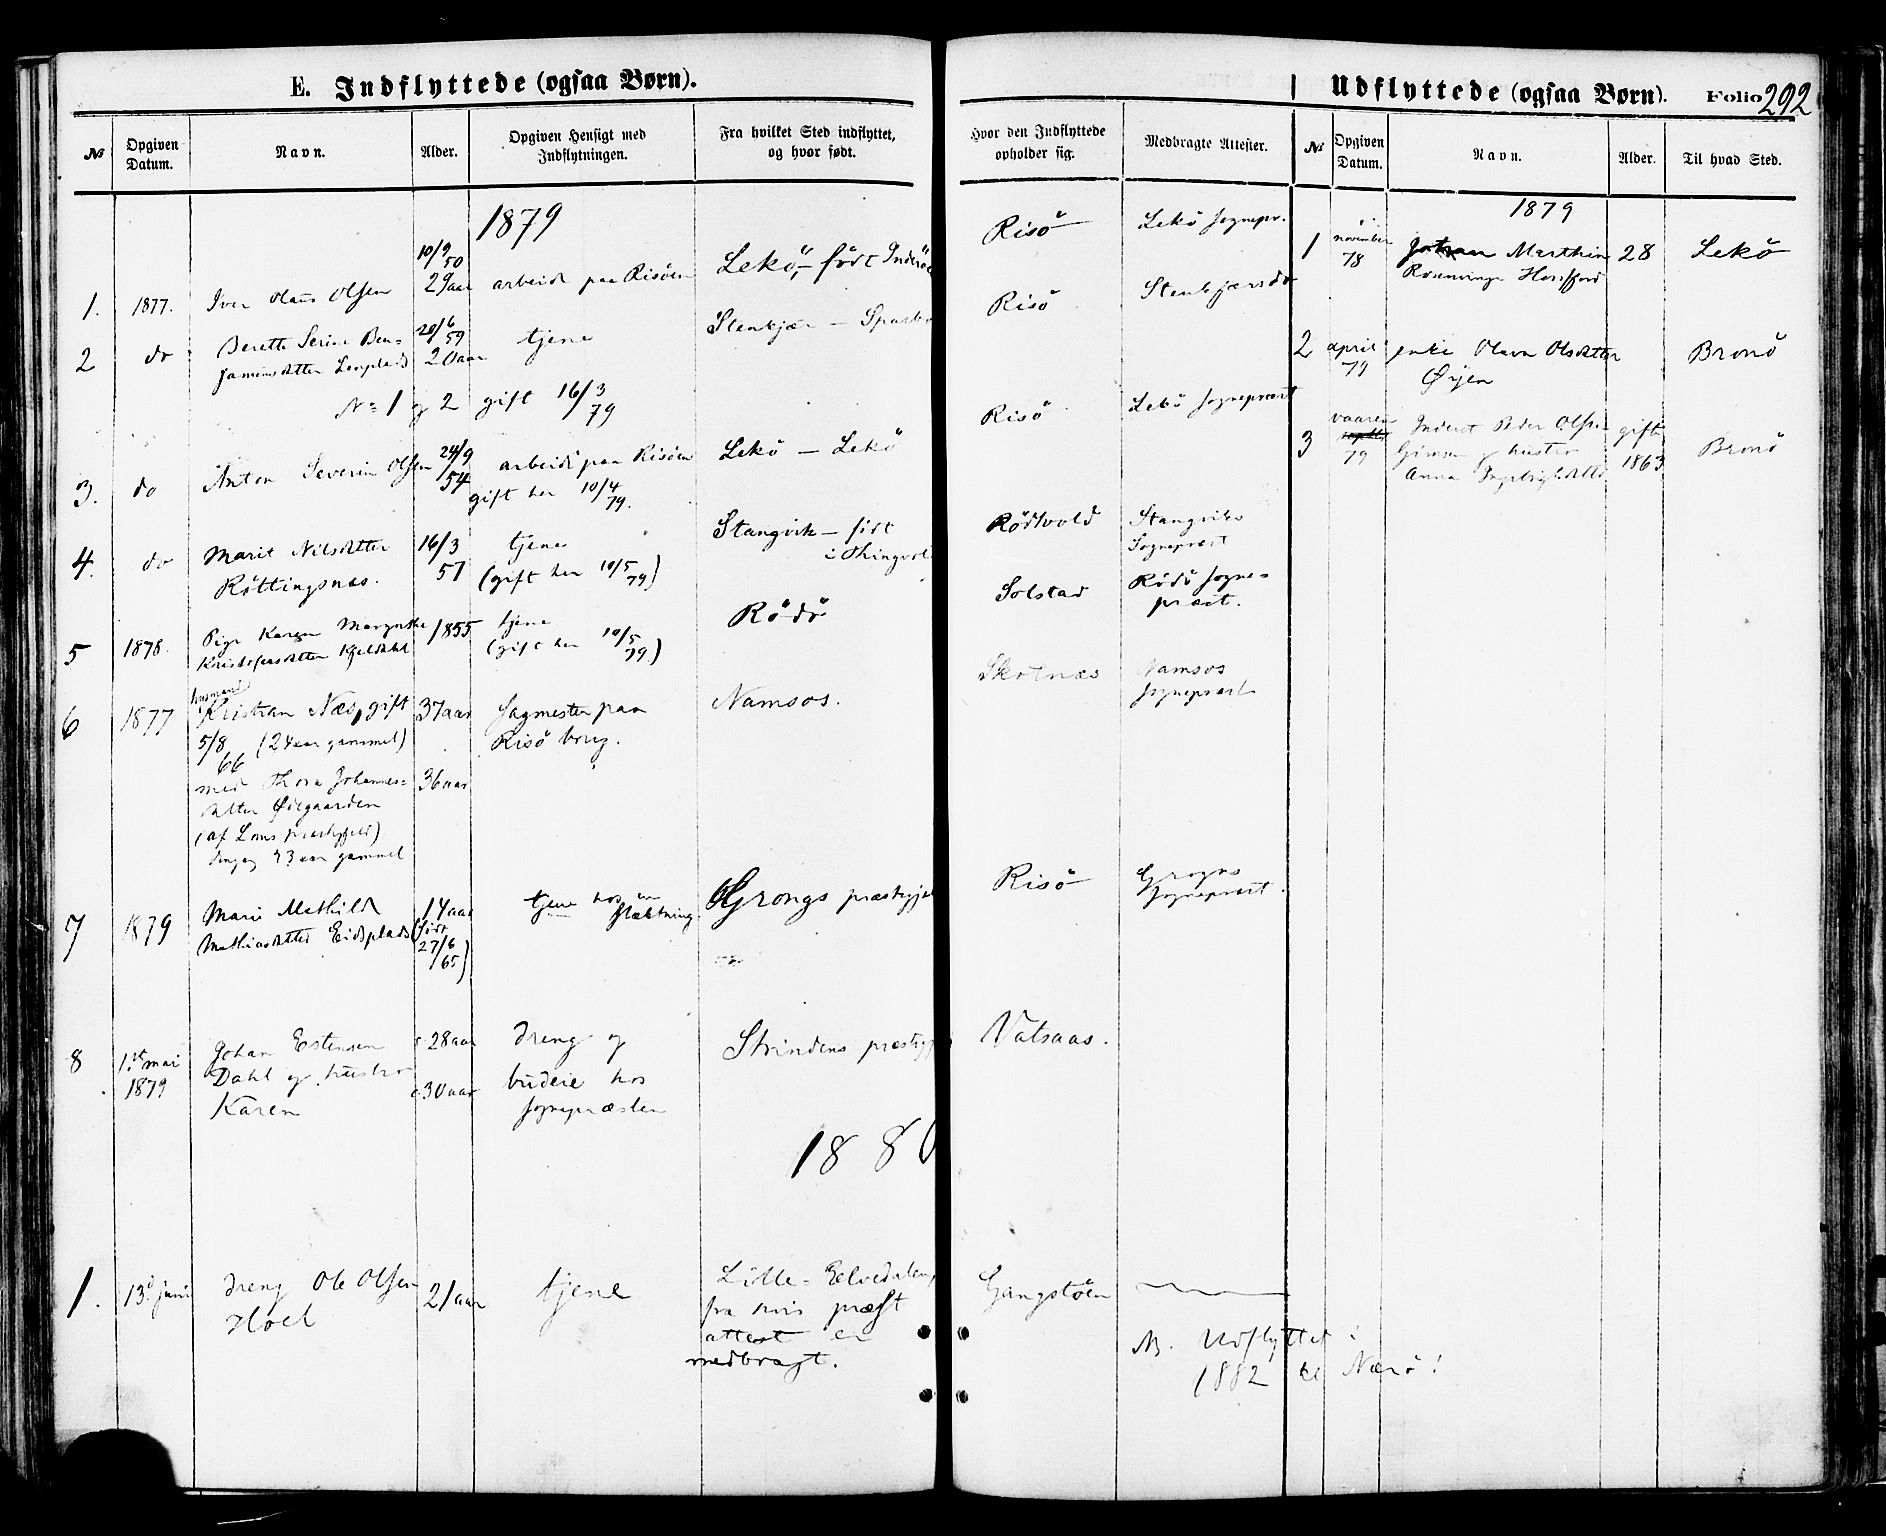 E. Indflyttede (ogsaa Børn).
№
Opgiven
Datum.
Navn.
Alder.
Opgiven Hensigt med
Indflytningen.
Fra hvilket Sted indflyttet,
og hvor født.
Hvor den Indflyttede
opholder sig.
Medbragte Attester.
1879
1. 1877. Iver Olaus Olsen
10/9
50
29 aar
arbeide paa Risöen
Lekö, - fört Inderöe
Risö
Lekö Sognepr.
2 do Berette Serine Ben=
jaminsdatter
20/6
59
20 aar
tjene
Stenkjær -
Risö
Stenkjærs do
№ 1 og 2 gift 16/3
79
3. do Anton Severin Olsen
24/9
54
arbeide paa Risöen
gift her 10/4
79.
Lekö - Lekö
Risö
Lekö Sogneprest
4. do Marit Nilsdatter
Röttingsnæs.
16/3
57
tjene
(gift her 10/5
79)
Stangvik - fört
i Thingvol
Rödlvold
Stangviks
Sogneprest
5 1878. Pige Karen Margrethe
Kristofersdatter
1855
tjene
(gift her 10/5
79.)
Rödö
Solstad
Rödö Sogne=
præst.
6 1877
husmand
Kristian Næs, gift
5/8 (24 aar gammel)
66
med Thora Johannes=
datter Ødegaarden
(af Loms præstegjeld)
23 aar gammel
37 aar
36 aar
Sagmester paa
Risö brug.
Namsos.
Skotnæs
Namsos
Sogneprest
7 1879 Marie Mathilde
Mathiasdatter Eidsplads
14 aar
(födt
27/6
65)
tjene hos sin
slægtning.
Grongs præstegjel
Risö
Grongs
Sogneprest.
8 1ste mai
1879
Johan Estensen
Dahl og hustro
Karen
c. 28 aar
c. 30 aar
dreng og
budeie hos
Sognepræsten
Strindens præstegj
Vatsaas.
1880
1. 13d juni
dreng Ole Olsen
Hoel
21 aar
tjene
Lille-Elvedalen,
fra hvis præst
attest er
medbragt.
Gangstöen
NB. Udflyttet i
1882 til Nærö!
Udflyttede (ogsaa Børn). Folio 292
№
Opgiven
Datum.
Navn.
Alder.
Til hvad Sted.
1879
1 november
78
Johan Marthin
Rosenvinge
28
Lekö
2 april
79
enke Olava Olsdatter
Ørjen
Bronö
3 vaaren
79
Inderst Peder Olsen
og hustro
Anna
gift
1863
Bronö